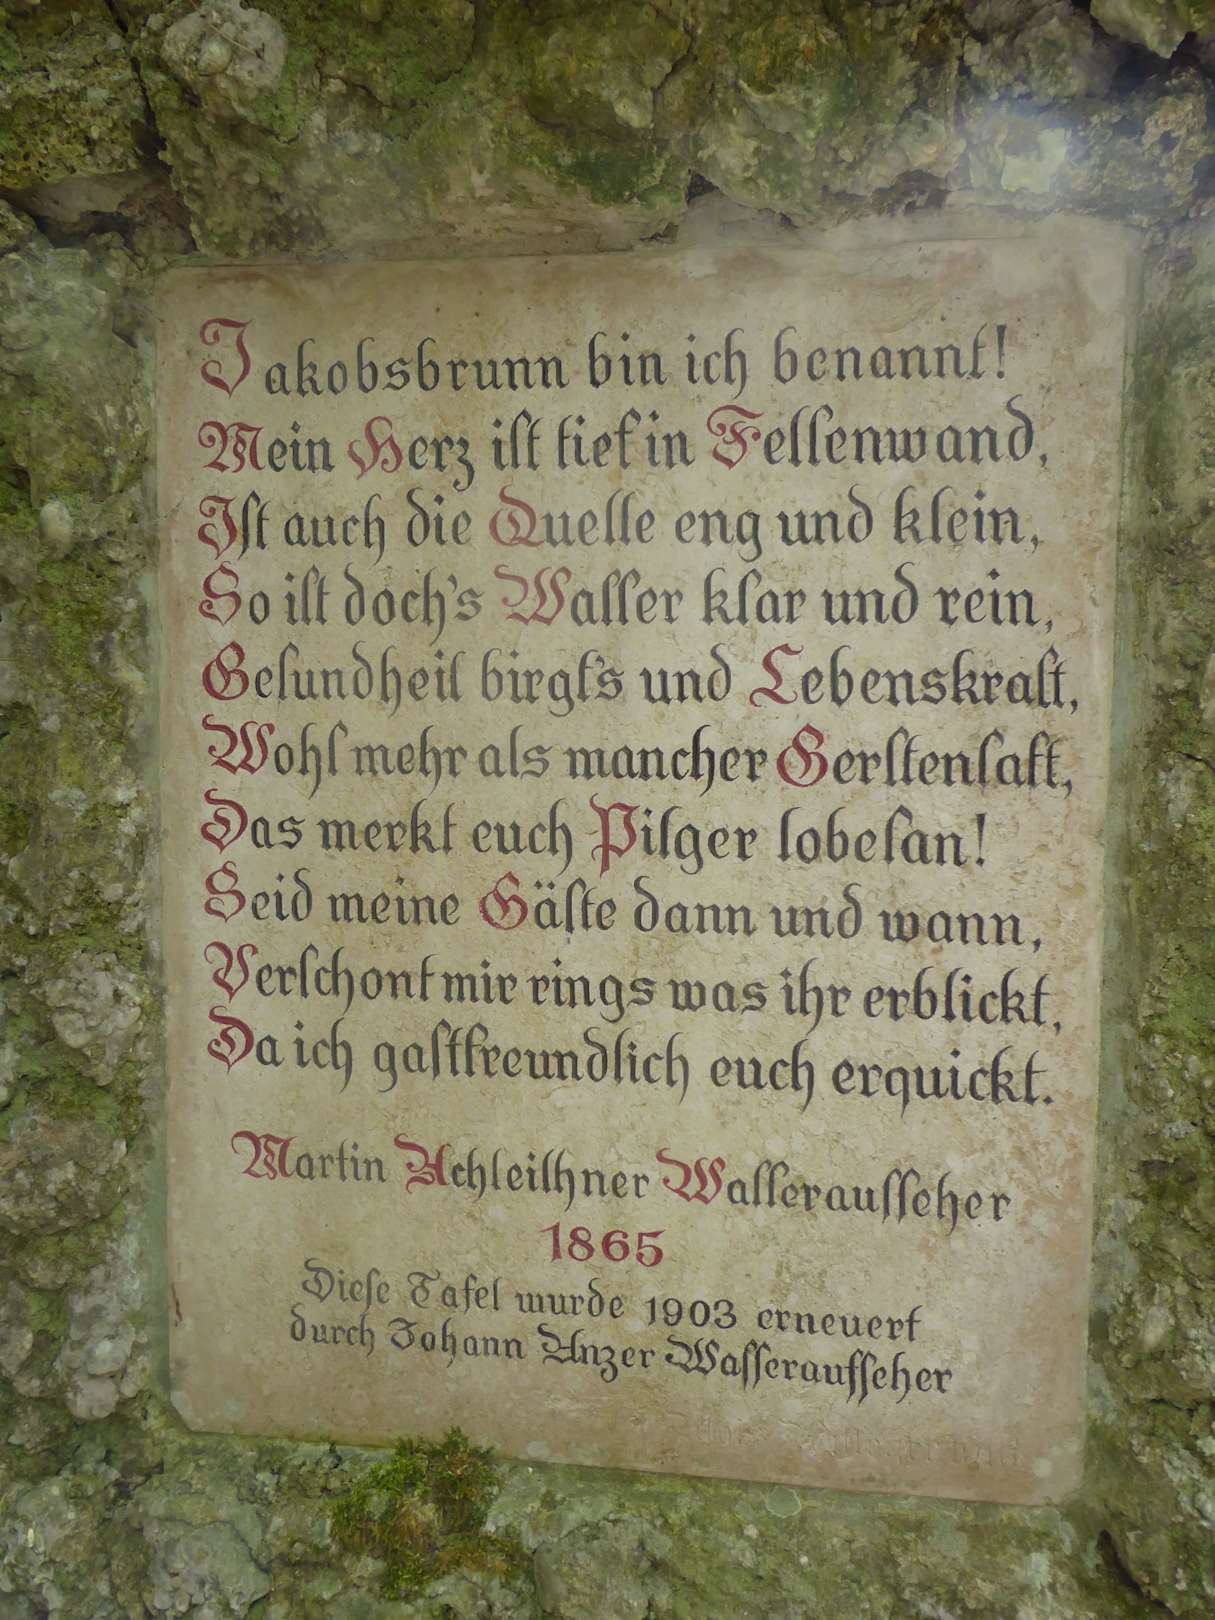 Jakobsbrunn bin ich benannt!
Mein Herz ist tief in Felsenwand,
Ist auch die Quelle eng und klein,
So ist doch's Wasser klar und rein,
Gesundheit birgt's und Lebenskraft,
Wohl mehr als mancher Gerstensaft,
Das merkt euch Pilger lobesan!
Seid meine Gäste dann und wann,
Verschont mir rings was ihr erblickt,
Da ich gastfreundlich euch erquickt.
Martin Achleithner Wasseraufseher
1865
Diese Tafel wurde 1903 erneuert
durch Johann Anzer Wasseraufseher